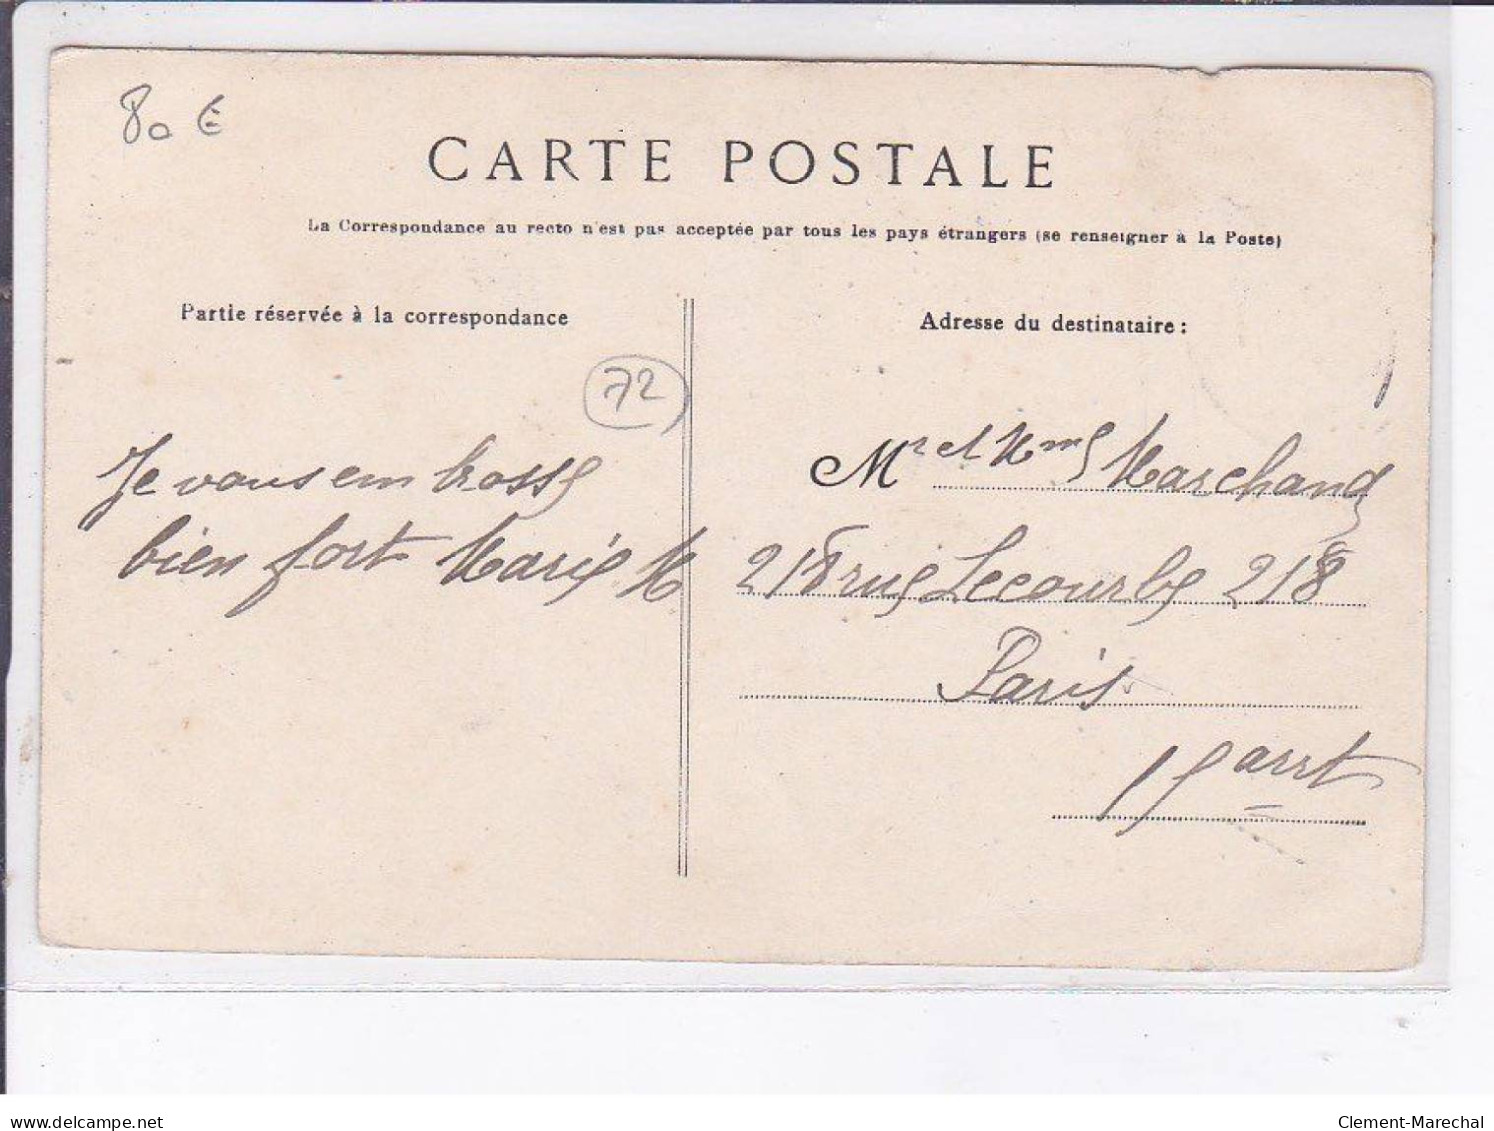 80 €
CARTE POSTALE
La Correspondance au recto n'est pas acceptée par tous les pays étrangers (se renseigner à la Poste)
Partie réservée à la correspondance
72
Je vous embrasse
bien fort Marie M
Adresse du destinataire :
Mr et Mme Marchand
218 rue Lecourbe 218
Paris
15e arrt
delcampe.net
Clement-Marechal